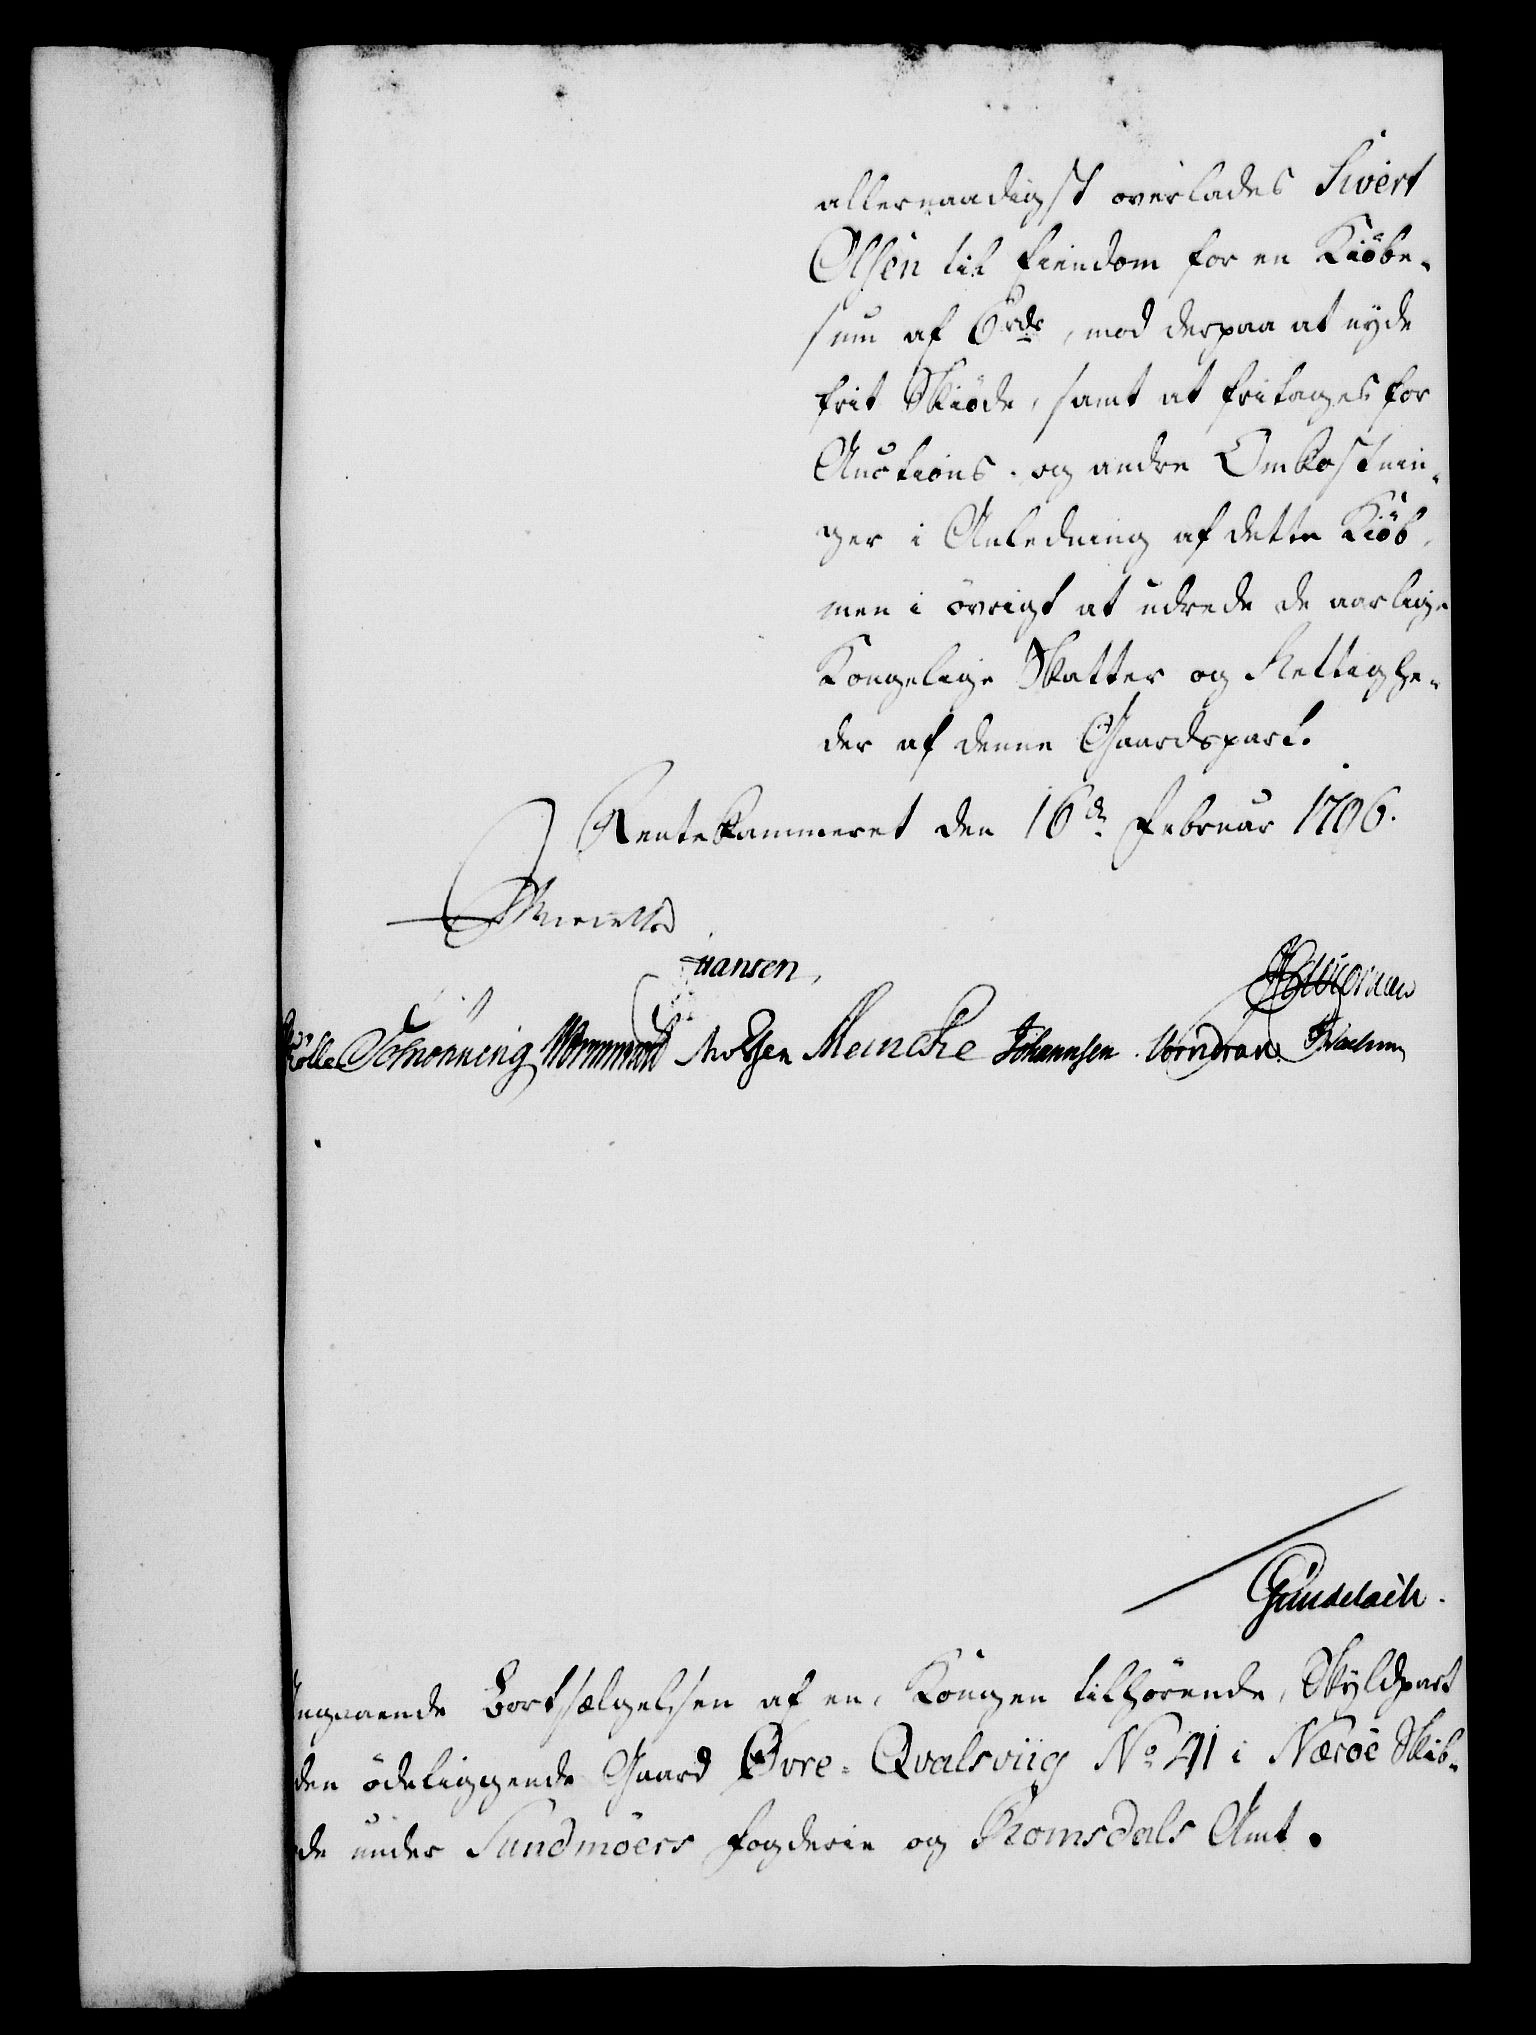 allernaadigst overlades Sivert
Olsen til Eiendom for en Kiöbe-
sum af 6 rdr, mod derpaa at nyde
frit Skiöde, samt at fritages for
Auctions- og andre Omkostnin-
ger i Anledning af dette Kiöb,
men i övrigt at udrede de aarlige
Kongelige Skatter og Rettighe-
der af denne Gaardspart.
Rentekammeret den 16de Februar 1796.
Hansen,
Schönning Wormskiold Meincke Johannsen
Gundelach.
Angaaende Bortsælgelsen af en, Kongen tilhörende, Skyldpart
den ödeliggende Gaard Øvre-Qvalsviig No 41 i Næröe Skib-
de under Sundmöers Fogderie og Romsdals Amt.